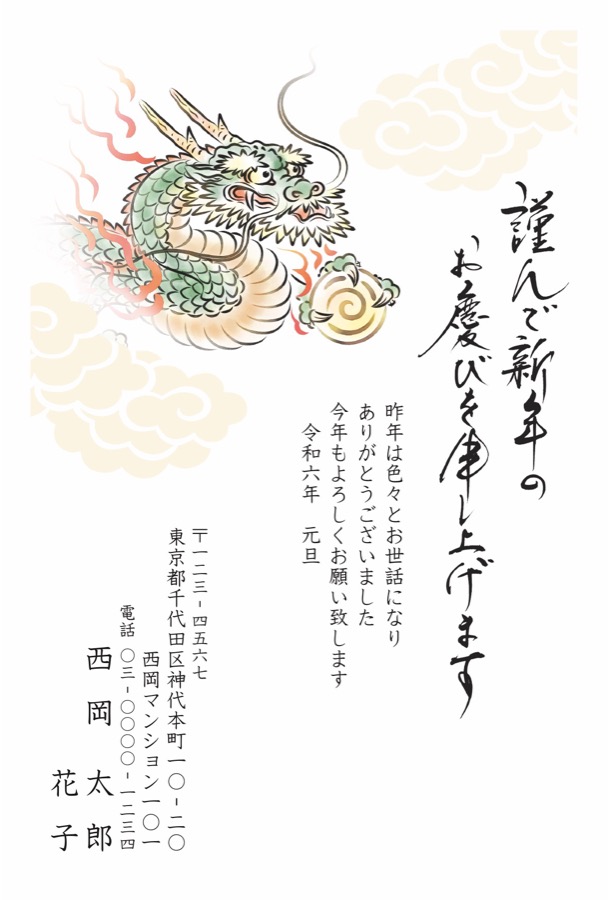 謹んで新年の
お慶びを申し上げます
昨年は色々とお世話になり
ありがとうございました
今年もよろしくお願い致します
令和六年　元旦
〒一二三-四五六七
東京都千代田区神代本町一〇-二〇
西岡マンション一〇一
電話 〇三-〇〇〇〇-一二三四
西岡 太郎
花子